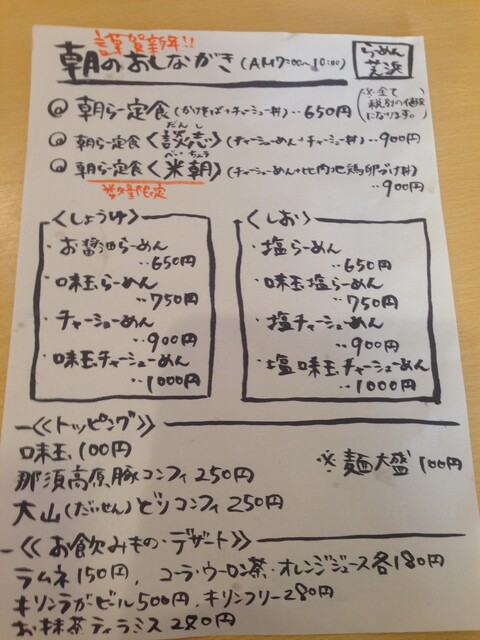 謹賀新年!!
朝のおしながき (AM7:00〜10:00)
らーめん
芝浜
@ 朝らー定食 (かけそば+チャーシュー丼) ‥650円
(※全て
税別の価格
になります。)
@ 朝らー定食 <談志> (チャーシューめん+チャーシュー丼) ‥900円
だんし
@ 朝らー定食 <米朝> (チャーシューめん+比内地鶏卵づけ丼)
べいちょう
‥900円
数量限定
<しょうゆ>
・お醤油らーめん
‥650円
・味玉らーめん
‥750円
・チャーシューめん
‥900円
・味玉チャーシューめん
‥1000円
<しお>
・塩らーめん
‥650円
・味玉塩らーめん
‥750円
・塩チャーシューめん
‥900円
・塩味玉チャーシューめん
‥1000円
<<トッピング>>
味玉 100円
※麺大盛 100円
那須高原豚コンフィ 250円
大山(だいせん)どりコンフィ 250円
<<お飲みもの・デザート>>
ラムネ 150円, コーラ・ウーロン茶・オレンジジュース各180円
キリンラガービール 500円, キリンフリー 280円
お抹茶ティラミス 280円